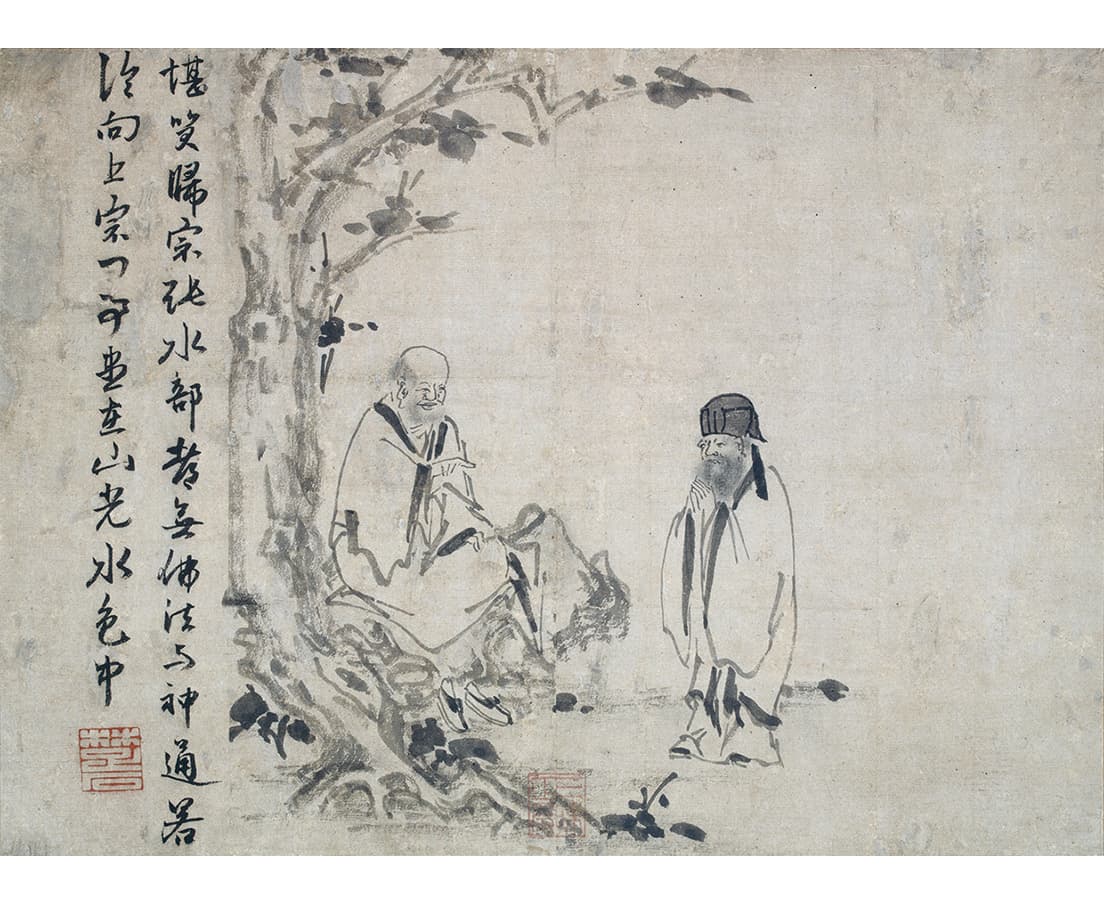 堪笑歸宗張水部都無佛法与神通若
論向上宗門事盡在山光水色中
楚石